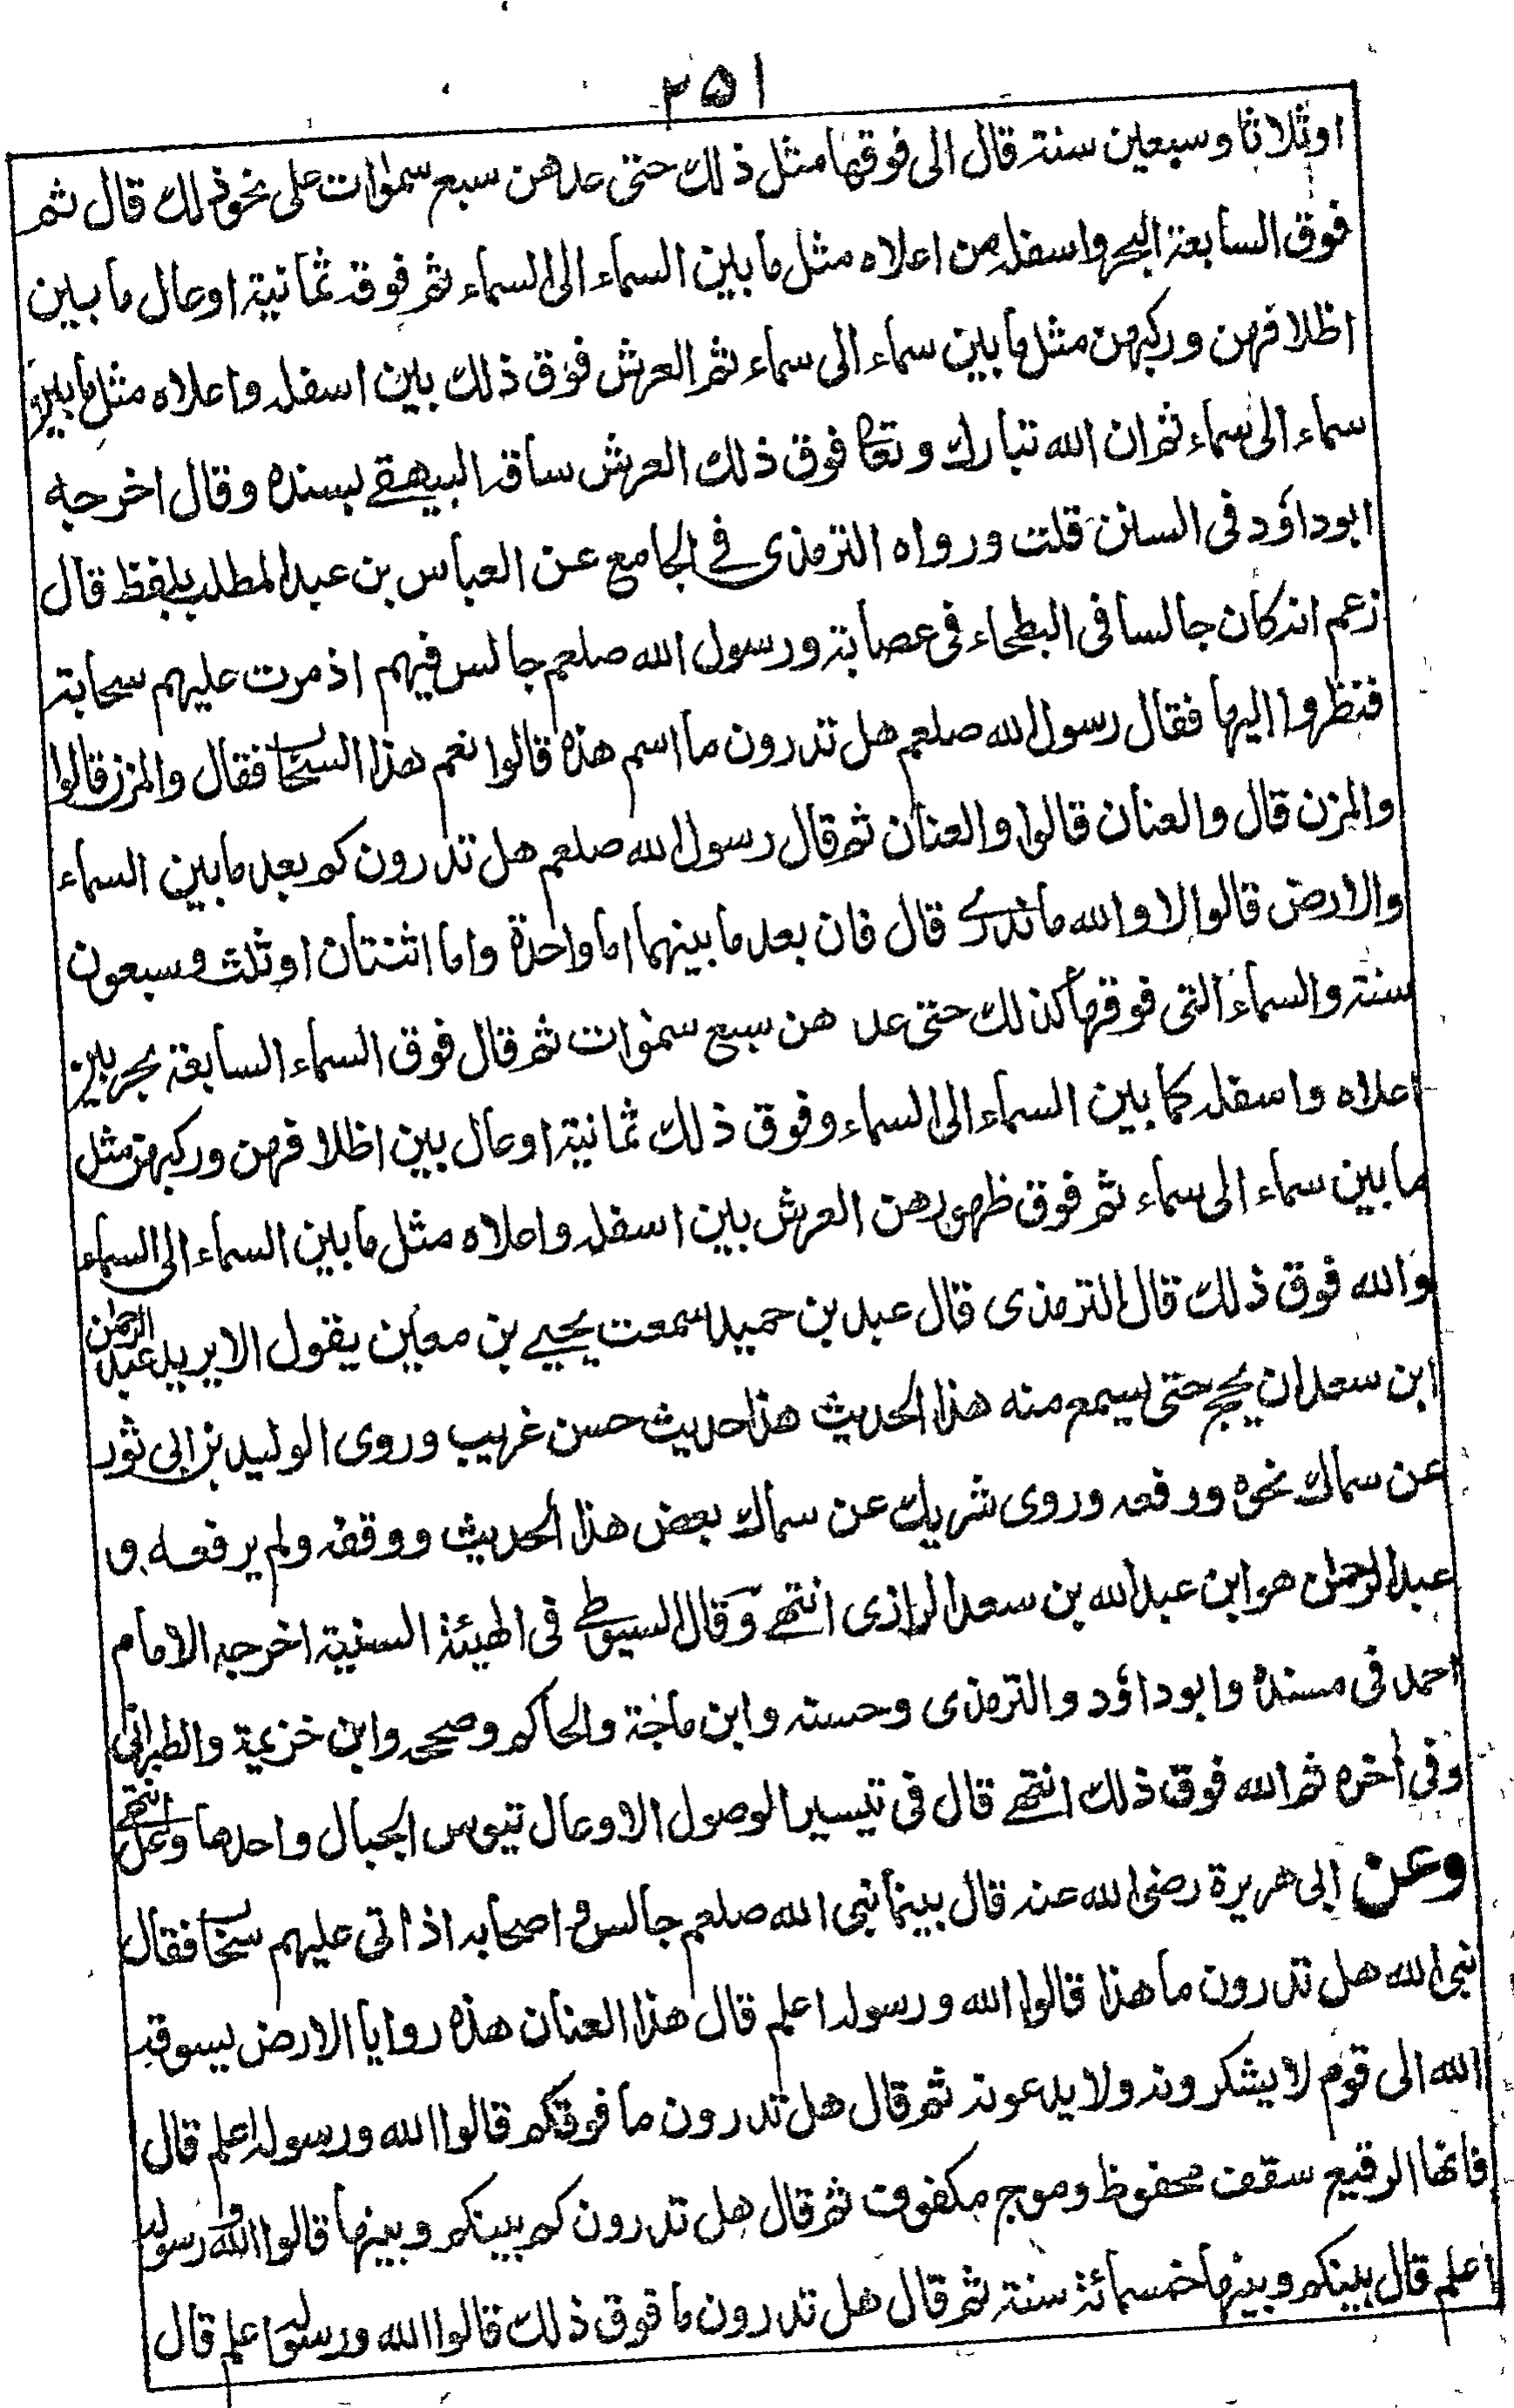 ٢٥١
اوثلاثا وسبعين سنة قال الى فوقها مثل ذلك حتى عدهن سبع سموات على نحو ذلك قال ثم
فوق السابعة البحر واسفله من اعلاه مثل ما بين السماء الى السماء ثم فوقه ثمانية اوعال ما بين
اظلافهن وركبهن مثل ما بين سماء الى سماء ثم العرش فوق ذلك بين اسفله واعلاه مثل ما بين
سماء الى سماء ثم ان الله تبارك وتعا فوق ذلك العرش ساقه البيهقے بسنده وقال اخرجه
ابوداؤد فى السنن قلت ورواه الترمذى فے الجامع عن العباس بن عبد المطلب بلفظ قال
زعم انه كان جالسا فى البطحاء فى عصابة ورسول الله صلعم جالس فيهم اذ مرت عليهم سحابة
فنظروا اليها فقال رسول الله صلعم هل تدرون ما اسم هذه قالوا نعم هذا السحاب فقال والمزن قالوا
والمزن قال والعنان قالوا والعنان ثم قال رسول الله صلعم هل تدرون كم بعد ما بين السماء
والارض قالوا لا والله ماندرے قال فان بعد ما بينهما اما واحدة واما اثنتان اوثلث وسبعون
سنة والسماء التى فوقها كذلك حتى عد هن سبع سموات ثم قال فوق السماء السابعة بحر بين
اعلاه واسفله كما بين السماء الى السماء وفوق ذلك ثمانية اوعال بين اظلافهن وركبهن مثل
ما بين سماء الى سماء ثم فوق ظهورهن العرش بين اسفله واعلاه مثل ما بين السماء الى السماء
والله فوق ذلك قال الترمذى قال عبد بن حميد سمعت يحيے بن معين يقول الا يريد عبد الرحمن
ابن سعد ان يحج حتى يسمع منه هذا الحديث هذا حديث حسن غريب وروى الوليد بن ابى ثور
عن سماك نحوه ورفعه وروى شريك عن سماك بعض هذا الحديث ووقفه ولم يرفعه و
عبد الرحمن هو ابن عبد الله بن سعد الرازى انتهے وقال السيوطے فى الهيئة السنية اخرجه الامام
احمد فى مسنده وابوداؤد والترمذى وحسنه وابن ماجة والحاكم وصححه وابن خزيمة والطبرانى
وفى أخره ثم الله فوق ذلك انتهے قال فى تيسير الوصول الاوعال تيوس الجبال واحدها وعل انتهے
وعن ابى هريرة رضى الله عنه قال بينما نبى الله صلعم جالس واصحابه اذ اتى عليهم سحاب فقال
نبى الله هل تدرون ما هذا قالوا الله ورسوله اعلم قال هذا العنان هذه روايا الارض يسوقه
الله الى قوم لا يشكرونه ولا يدعونه ثم قال هل تدرون ما فوقكم قالوا الله ورسوله اعلم قال
فانها الرقيع سقف محفوظ وموج مكفوف ثم قال هل تدرون كم بينكم وبينها قالوا الله ورسوله
اعلم قال بينكم وبينها خمسمائة سنة ثم قال هل تدرون ما فوق ذلك قالوا الله ورسوله اعلم قال